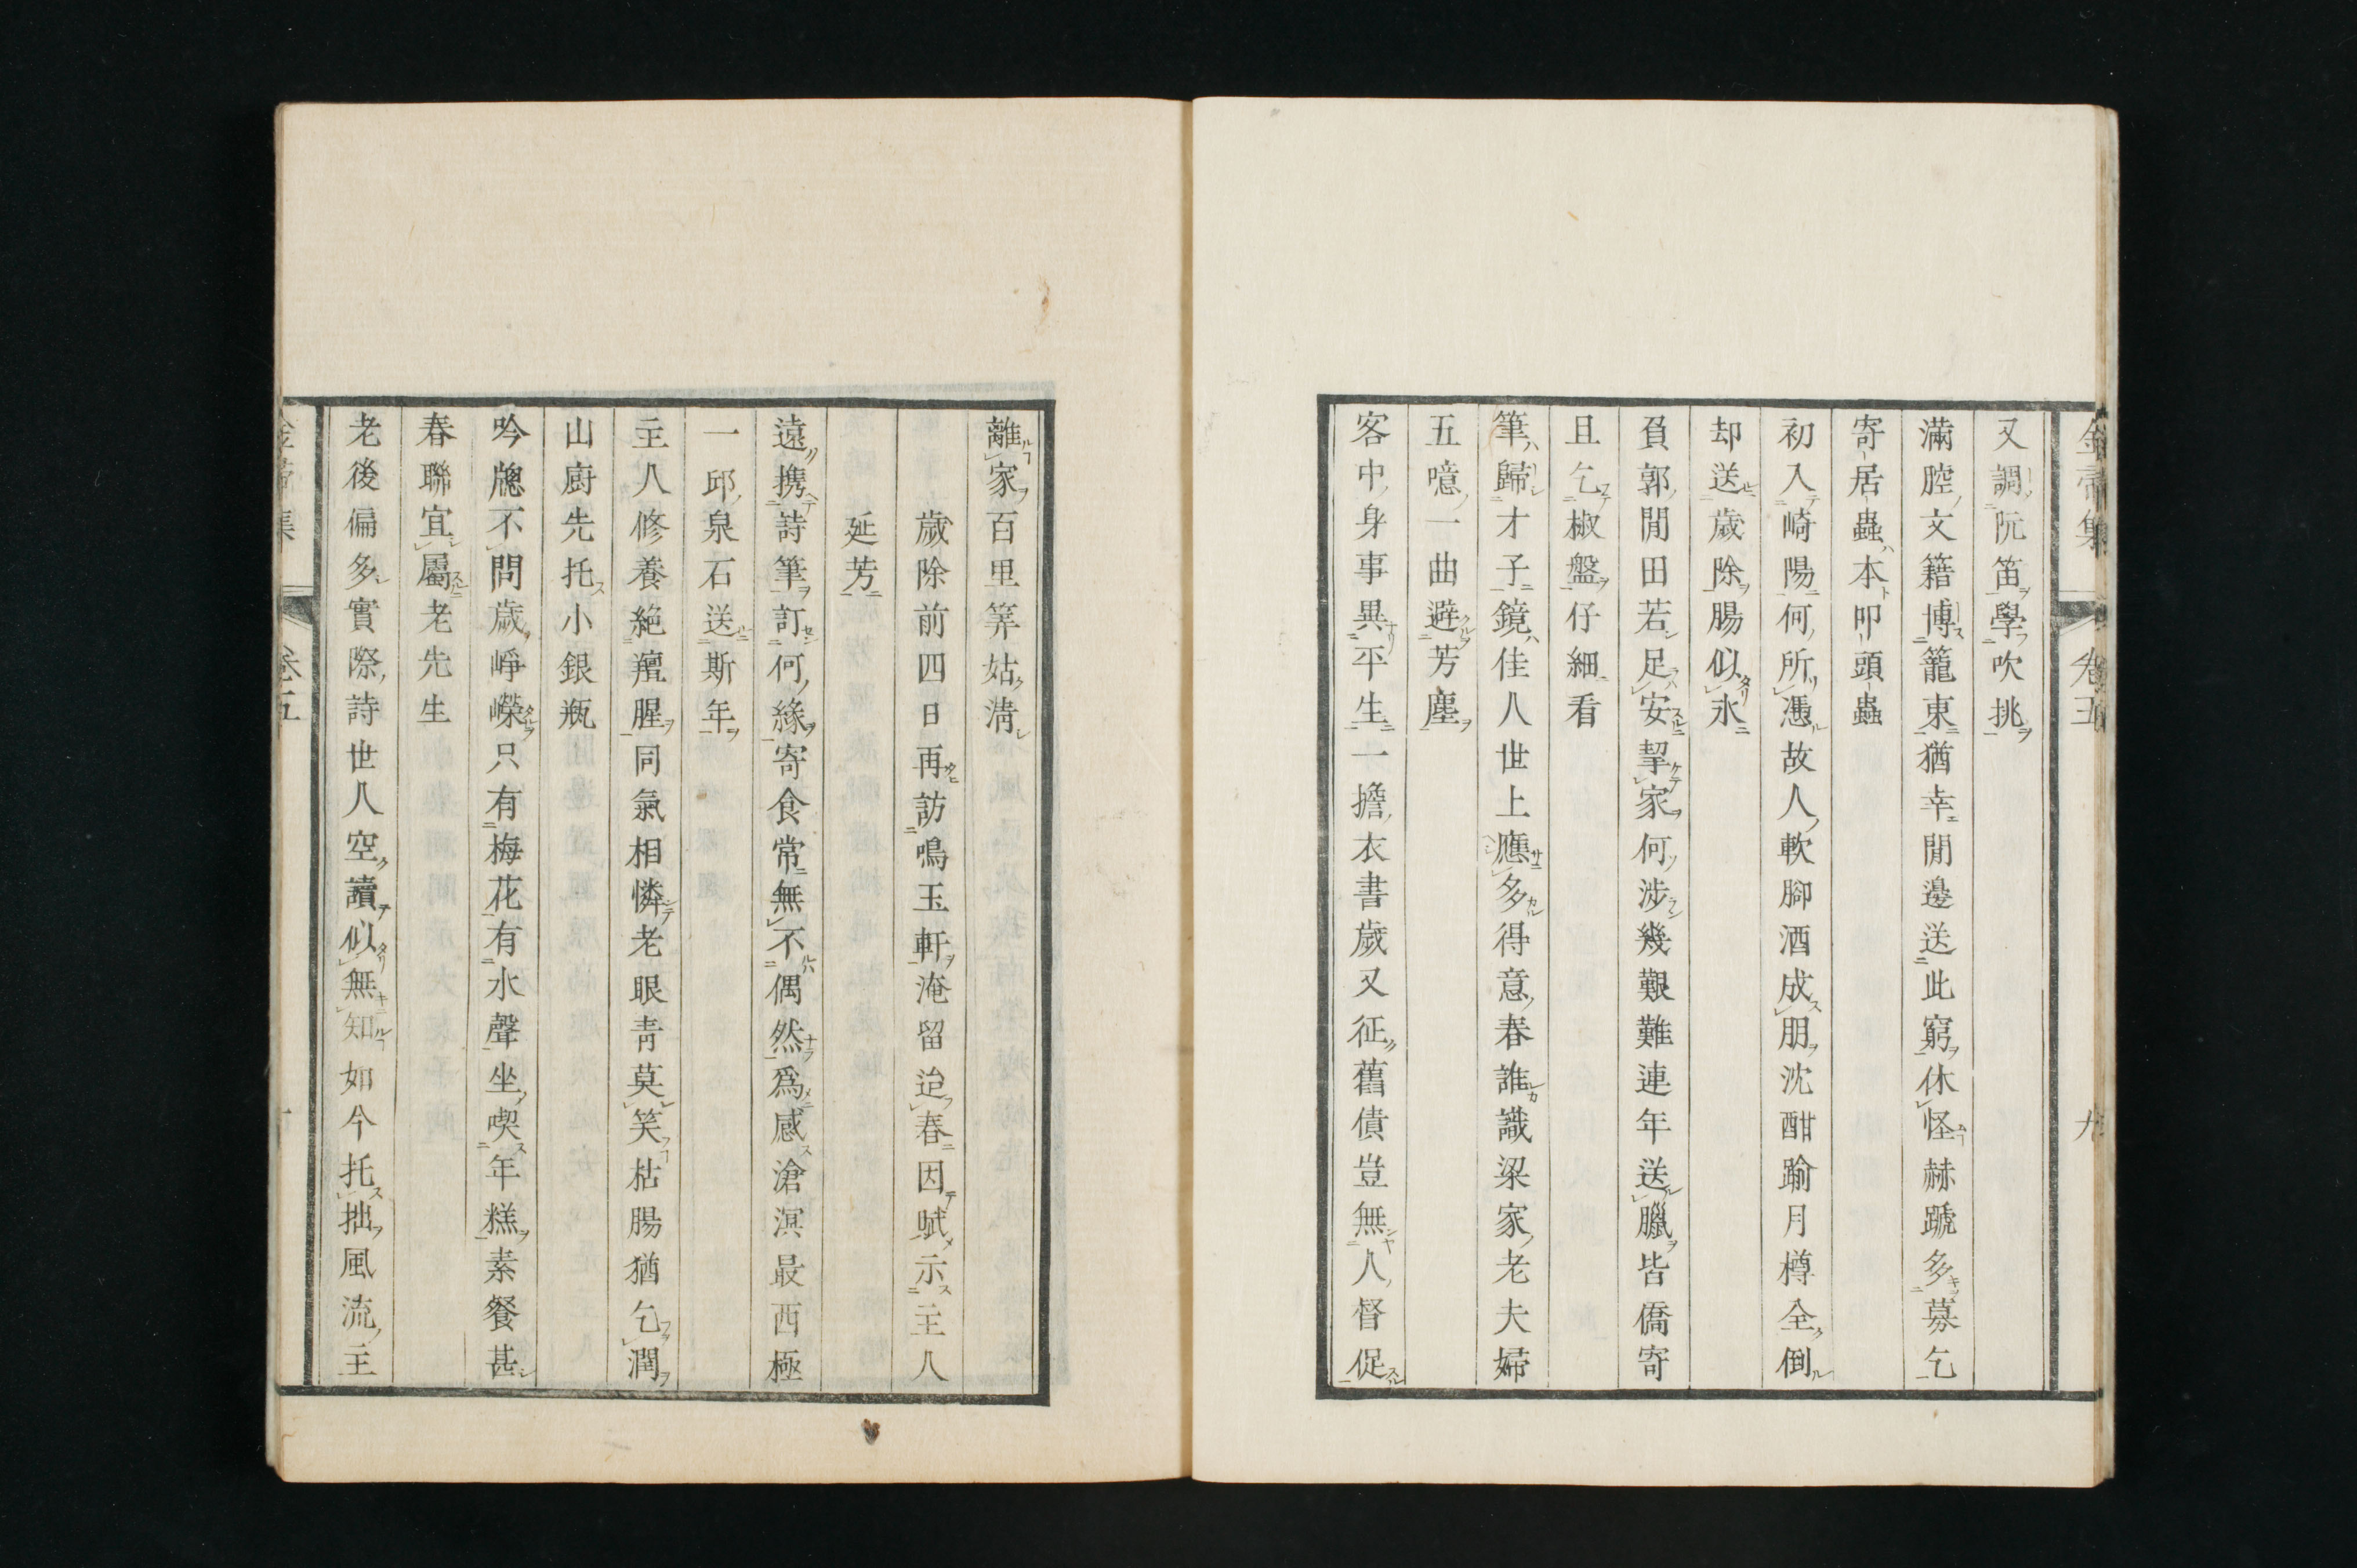 又調阮笛學吹挑
滿腔文籍博籠東猶幸閒邊送此窮休怪赫蹏多募乞
寄居蟲本叩頭蟲
初入崎陽何所憑故人軟腳酒成朋沈酣踰月樽全倒
却送歲除腸似氷
負郭閒田若足安挈家何涉幾艱難連年送臘皆僑寄
且乞椒盤仔細看
筆歸才子鏡佳人世上應多得意春誰識梁家老夫婦
五噫一曲避芳塵
客中身事異平生一擔衣書歲又征舊債豈無人督促
離家百里筭姑淸
歲除前四日再訪鳴玉軒淹留迨春因賦示主人
延芳
遠攜詩筆訂何緣寄食常無不偶然爲感滄溟最西極
一邱泉石送斯年
主人修養絕羶腥同氣相憐老眼靑莫笑枯腸猶乞潤
山廚先托小銀瓶
吟牕不問歲崢嶸只有梅花有水聲坐喫年糕素餐甚
春聯宜屬老先生
老後偏多實際詩世人空讀似無知如今托拙風流主
卷五
九